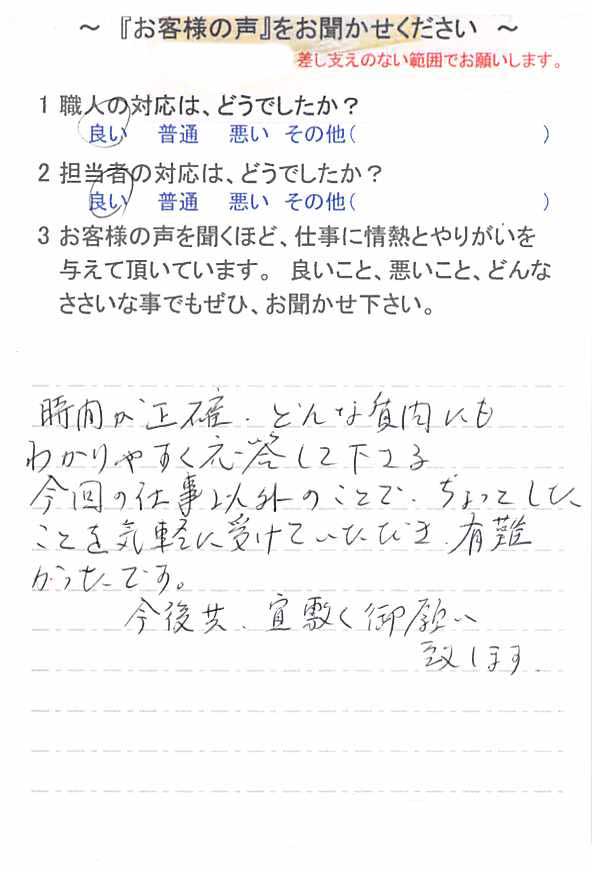 ～ 『お客様の声』をお聞かせください ～
差し支えのない範囲でお願いします。
1 職人の対応は、どうでしたか？
良い 普通 悪い その他( )
2 担当者の対応は、どうでしたか？
良い 普通 悪い その他( )
3 お客様の声を聞くほど、仕事に情熱とやりがいを
与えて頂いています。 良いこと、悪いこと、どんな
ささいな事でもぜひ、お聞かせ下さい。
時間が正確、どんな質問にも
わかりやすく応答して下さる
今回の仕事以外のことで、ちょっとした
ことを気軽に受けていただき、有難
かったです。
今後共、宜敷く御願い
致します。